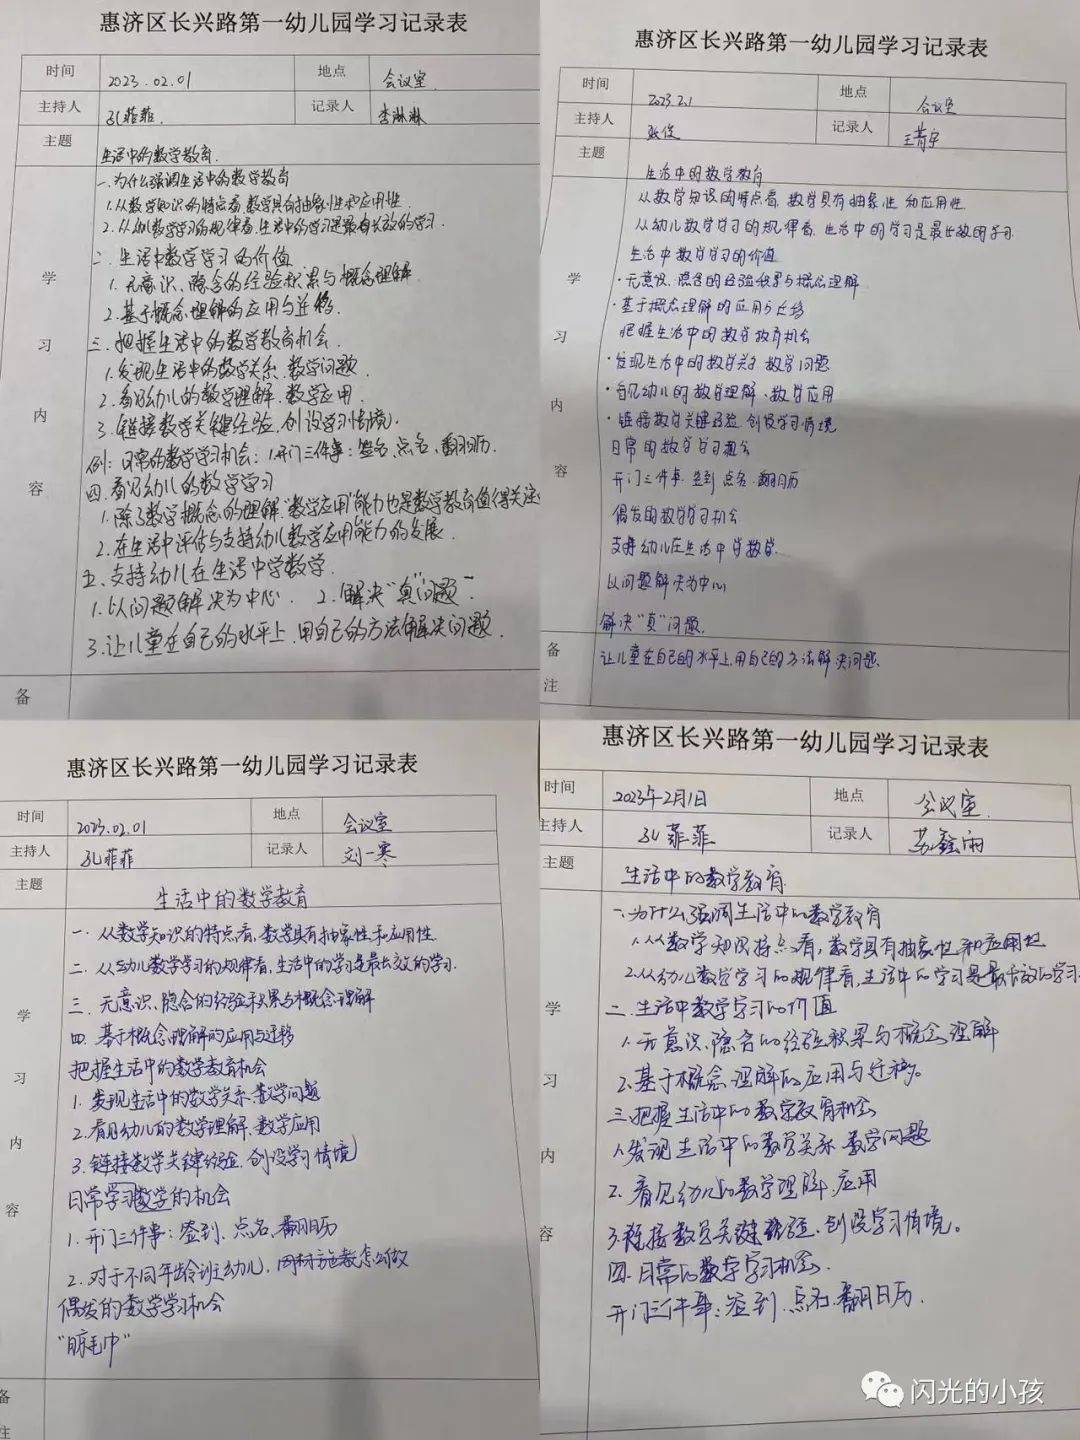 惠济区长兴路第一幼儿园学习记录表
时间 2023.02.01 地点 会议室
主持人 孔菲菲 记录人 李琳琳
主题 生活中的数学教育
学习内容
一.为什么强调生活中的数学教育
1.从数学知识的特点看,数学具有抽象性和应用性.
2.从幼儿数学学习的规律看,生活中的学习是最有长效的学习.
二.生活中数学学习的价值
1.无意识、隐含的经验积累与概念理解
2.基于概念理解的应用与迁移.
三.把握生活中的数学教育机会.
1.发现生活中的数学关系、数学问题.
2.看见幼儿的数学理解、数学应用.
3.链接数学关键经验,创设学习情境.
例:日常的数学学习机会:1.开门三件事:签名、点名、翻日历.
四.看见幼儿的数学学习
1.除了数学概念的理解,"数学应用"能力也是数学教育值得关注
2.在生活中评估与支持幼儿数学应用能力的发展.
五.支持幼儿在生活中学数学.
1.以问题解决为中心. 2.解决"真"问题.
3.让儿童在自己的水平上,用自己的方法解决问题.
备
惠济区长兴路第一幼儿园学习记录表
时间 2023.2.1 地点 会议室
主持人 记录人
主题 生活中的数学教育
学习内容
从数学知识的特点看,数学具有抽象性和应用性.
从幼儿数学学习的规律看,生活中的学习是最长效的学习.
生活中数学学习的价值
·无意识、隐含的经验积累与概念理解
·基于概念理解的应用与迁移
把握生活中的数学教育机会
·发现生活中的数学关系 数学问题
·看见幼儿的数学理解、数学应用
·链接数学关键经验,创设学习情境
日常的数学学习机会
开门三件事 签到 点名 翻日历
偶发的数学学习机会
支持幼儿在生活中学数学
以问题解决为中心
解决"真"问题.
备注 让儿童在自己的水平上,用自己的方法解决问题.
惠济区长兴路第一幼儿园学习记录表
时间 2023.02.01 地点 会议室
主持人 孔菲菲 记录人 刘一寒
主题 生活中的数学教育
学习内容
一.从数学知识的特点看,数学具有抽象性和应用性
二.从幼儿数学学习的规律看,生活中的学习是最长效的学习.
三.无意识、隐含的经验积累与概念理解
四.基于概念理解的应用与迁移
把握生活中的数学教育机会
1.发现生活中的数学关系、数学问题
2.看见幼儿的数学理解、数学应用
3.链接数学关键经验,创设学习情境
日常学习数学的机会
1.开门三件事:签到、点名、翻日历
2.对于不同年龄班幼儿,因材施教怎么做
偶发的数学学习机会
"脏毛巾"
备注
惠济区长兴路第一幼儿园学习记录表
时间 2023年2月1日 地点 会议室
主持人 孔菲菲 记录人 苏鑫雨
主题 生活中的数学教育
学习内容
一.为什么强调生活中的数学教育
1.从数学知识特点看,数学具有抽象性和应用性
2.从幼儿数学学习的规律看,生活中的学习是最长效的学习
二.生活中数学学习的价值
1.无意识、隐含的经验积累与概念理解
2.基于概念理解的应用与迁移。
三.把握生活中的数学教育机会
1.发现生活中的数学关系 数学问题
2.看见幼儿的数学理解、应用
3.链接数学关键经验,创设学习情境。
四.日常的数学学习机会.
开门三件事:签到、点名、翻日历.
闪光的小孩